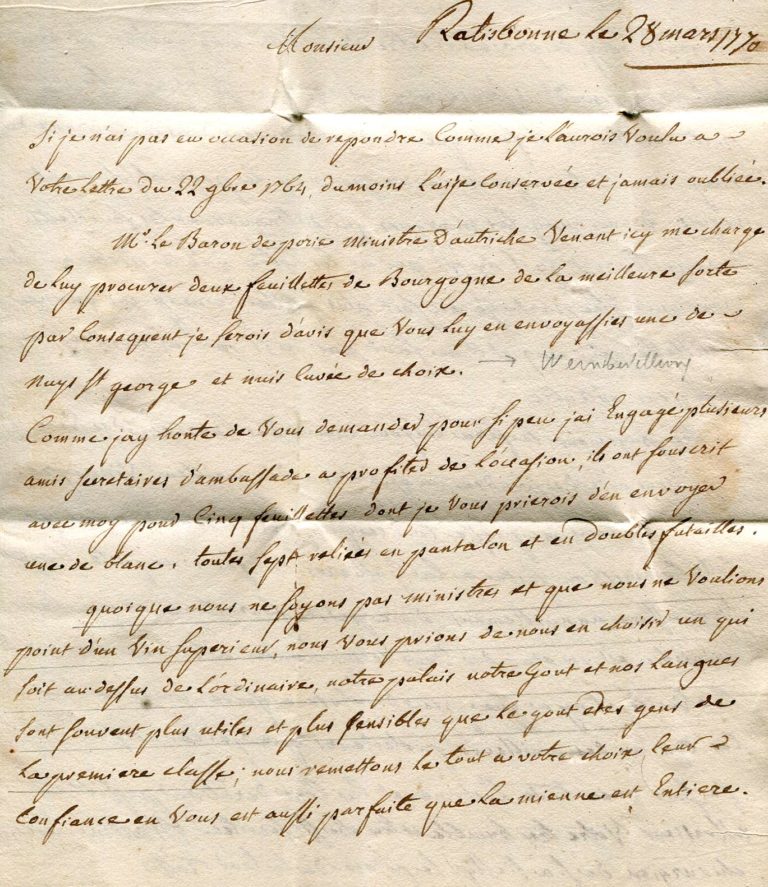 Ratisbonne le 28 mars 1770
Monsieur
Si je n'ai pas eu occasion de repondre Comme je L'aurois Voulu a
Votre Lettre du 22 gbre 1764, du moins L'aije Conservée et jamais oubliée.
Mr. Le Baron de porie Ministre D'autriche Venant icy me charge
de Luy procurer deux feuillettes de Bourgogne de La meilleure sorte
par Consequent je serois d'avis que Vous Luy en envoyassies une de
Nuys St george et nuis Cuvée de choix. →
Comme jay honte de Vous demander pour si peu jai Engagé plusieurs
amis secretaires d'ambassade a profiter de L'occasion, ils ont souscrit
avec moy pour Cinq feuillettes dont je Vous prierois d'en envoyer
une de blanc. toutes sept reliées en pantalon et en doubles futailles.
quoique nous ne soyons pas ministres et que nous ne Voulions
point d'un Vin superieur, nous Vous prions de nous en choisir un qui
soit au dessus de L'ordinaire, notre palais notre Gout et nos Langues
sont souvent plus utiles et plus sensibles que Le gout des gens de
La premiere classe; nous remettons Le tout a votre choix, leur
Confiance en Vous est aussi parfaite que La mienne est Entiere.